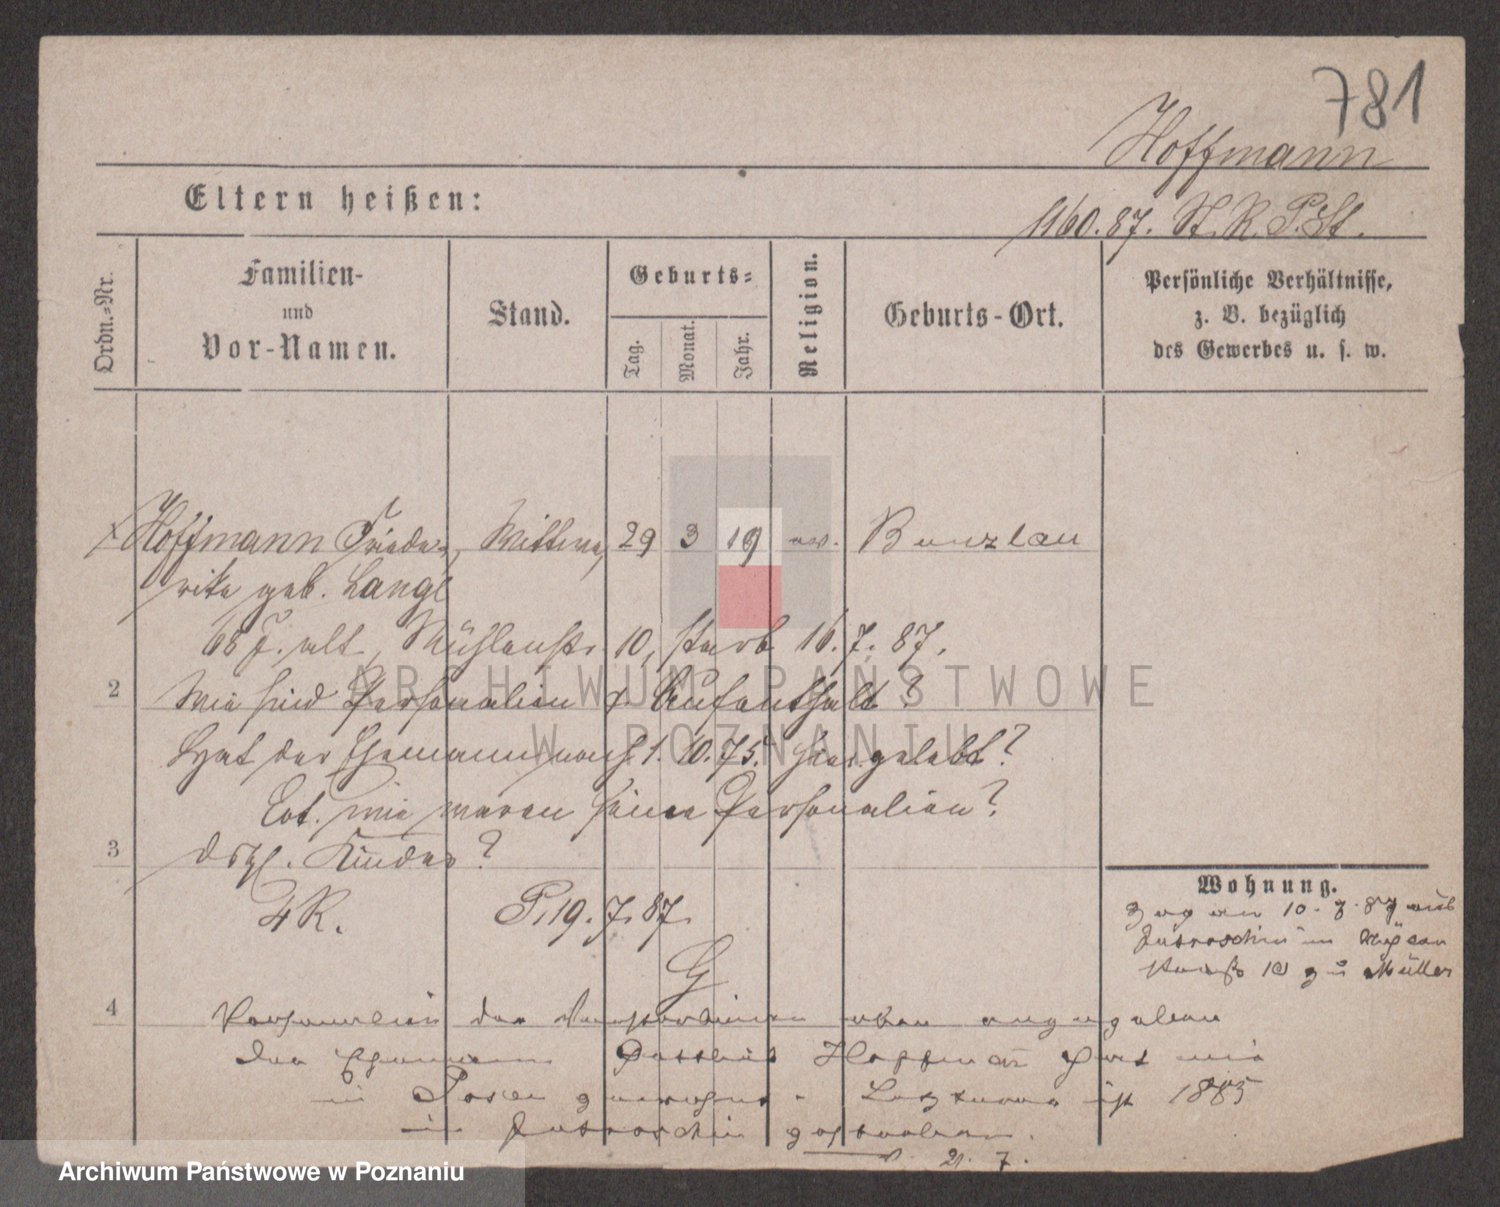 781
Hoffmann
Eltern heißen:
1160.87. St. R. P. St.
Ordn.-Nr.
Familien-
und
Vor-Namen.
Stand.
Geburts-
Tag.
Monat.
Jahr.
Religion.
Geburts-Ort.
Persönliche Verhältnisse,
z. B. bezüglich
des Gewerbes u. s. w.
Hoffmann Friede- Wittwe, 29 3 19 ev. Bunzlau
rike geb. Lange
68 J. alt, Mühlenstr. 10, starb 16.7.87.
2 Wie sind Personalien u. Aufenthalt?
Hat der Ehemann nach 1.10.75. hier gelebt?
Evt. wie waren seine Personalien?
3 dsgl. Kinder?
IV R. P. 19.7.87.
Wohnung.
Zog am 10.7.87 aus
Jutroschin in Mühlen
straße 10 zu Müller
4 Personalien der Verstorbenen oben angegeben
der Ehemann Gottlieb Hoffmañ hat nie
in Posen gewohnt. Letzterer ist 1885
in Jutroschin gestorben.
21. 7.
ARCHIWUM PAŃSTWOWE
W POZNANIU
Archiwum Państwowe w Poznaniu